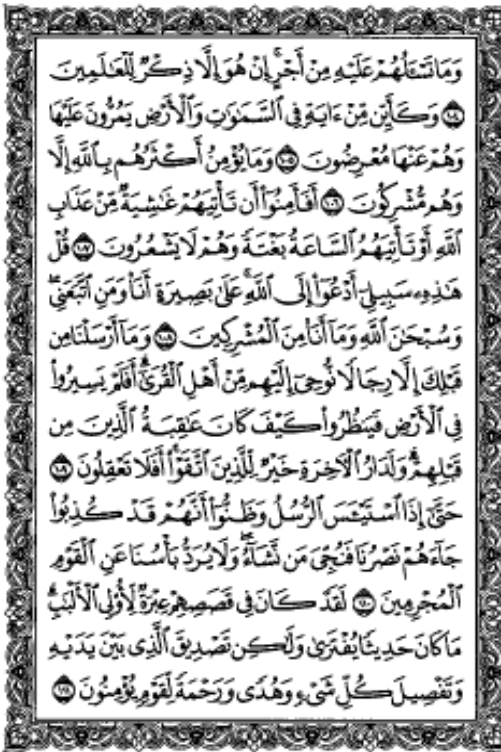 وَمَا تَسْـَٔلُهُمْ عَلَيْهِ مِنْ أَجْرٍ ۚ إِنْ هُوَ إِلَّا ذِكْرٌ لِّلْعَٰلَمِينَ
۝١٠٤ وَكَأَيِّن مِّنْ ءَايَةٍ فِى ٱلسَّمَٰوَٰتِ وَٱلْأَرْضِ يَمُرُّونَ عَلَيْهَا
وَهُمْ عَنْهَا مُعْرِضُونَ ۝١٠٥ وَمَا يُؤْمِنُ أَكْثَرُهُم بِٱللَّهِ إِلَّا
وَهُم مُّشْرِكُونَ ۝١٠٦ أَفَأَمِنُوٓا۟ أَن تَأْتِيَهُمْ غَٰشِيَةٌ مِّنْ عَذَابِ
ٱللَّهِ أَوْ تَأْتِيَهُمُ ٱلسَّاعَةُ بَغْتَةً وَهُمْ لَا يَشْعُرُونَ ۝١٠٧ قُلْ
هَٰذِهِۦ سَبِيلِىٓ أَدْعُوٓا۟ إِلَى ٱللَّهِ ۚ عَلَىٰ بَصِيرَةٍ أَنَا۠ وَمَنِ ٱتَّبَعَنِى ۖ
وَسُبْحَٰنَ ٱللَّهِ وَمَآ أَنَا۠ مِنَ ٱلْمُشْرِكِينَ ۝١٠٨ وَمَآ أَرْسَلْنَا مِن
قَبْلِكَ إِلَّا رِجَالًا نُّوحِىٓ إِلَيْهِم مِّنْ أَهْلِ ٱلْقُرَىٰٓ ۗ أَفَلَمْ يَسِيرُوا۟
فِى ٱلْأَرْضِ فَيَنظُرُوا۟ كَيْفَ كَانَ عَٰقِبَةُ ٱلَّذِينَ مِن
قَبْلِهِمْ ۗ وَلَدَارُ ٱلْءَاخِرَةِ خَيْرٌ لِّلَّذِينَ ٱتَّقَوْا۟ ۗ أَفَلَا تَعْقِلُونَ ۝١٠٩
حَتَّىٰٓ إِذَا ٱسْتَيْـَٔسَ ٱلرُّسُلُ وَظَنُّوٓا۟ أَنَّهُمْ قَدْ كُذِبُوا۟
جَآءَهُمْ نَصْرُنَا فَنُجِّىَ مَن نَّشَآءُ ۖ وَلَا يُرَدُّ بَأْسُنَا عَنِ ٱلْقَوْمِ
ٱلْمُجْرِمِينَ ۝١١٠ لَقَدْ كَانَ فِى قَصَصِهِمْ عِبْرَةٌ لِّأُو۟لِى ٱلْأَلْبَٰبِ ۗ
مَا كَانَ حَدِيثًا يُفْتَرَىٰ وَلَٰكِن تَصْدِيقَ ٱلَّذِى بَيْنَ يَدَيْهِ
وَتَفْصِيلَ كُلِّ شَىْءٍ وَهُدًى وَرَحْمَةً لِّقَوْمٍ يُؤْمِنُونَ ۝١١١